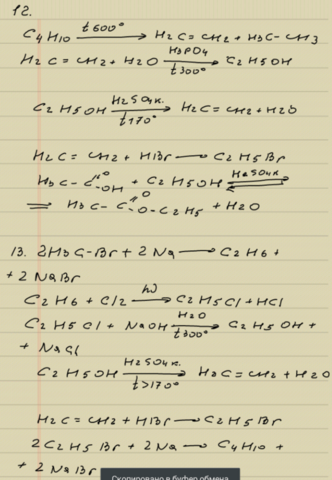 12.
C4H10 —t600°→ H2C=CH2 + H3C-CH3
H2C=CH2 + H2O —H3PO4, t300°→ C2H5OH
C2H5OH —H2SO4к., t170°→ H2C=CH2 + H2O
H2C=CH2 + HBr — C2H5Br
H3C-C(=O)-OH + C2H5OH ⇌ H2SO4к
⇒ H3C-C(=O)-O-C2H5 + H2O
13. 2H3C-Br + 2Na → C2H6 +
+ 2NaBr
C2H6 + Cl2 —hν→ C2H5Cl + HCl
C2H5Cl + NaOH —H2O, t300°→ C2H5OH +
+ NaCl
C2H5OH —H2SO4к., t>170°→ H2C=CH2 + H2O
H2C=CH2 + HBr — C2H5Br
2C2H5Br + 2Na → C4H10 +
+ 2NaBr
Скопировано в буфер обмена